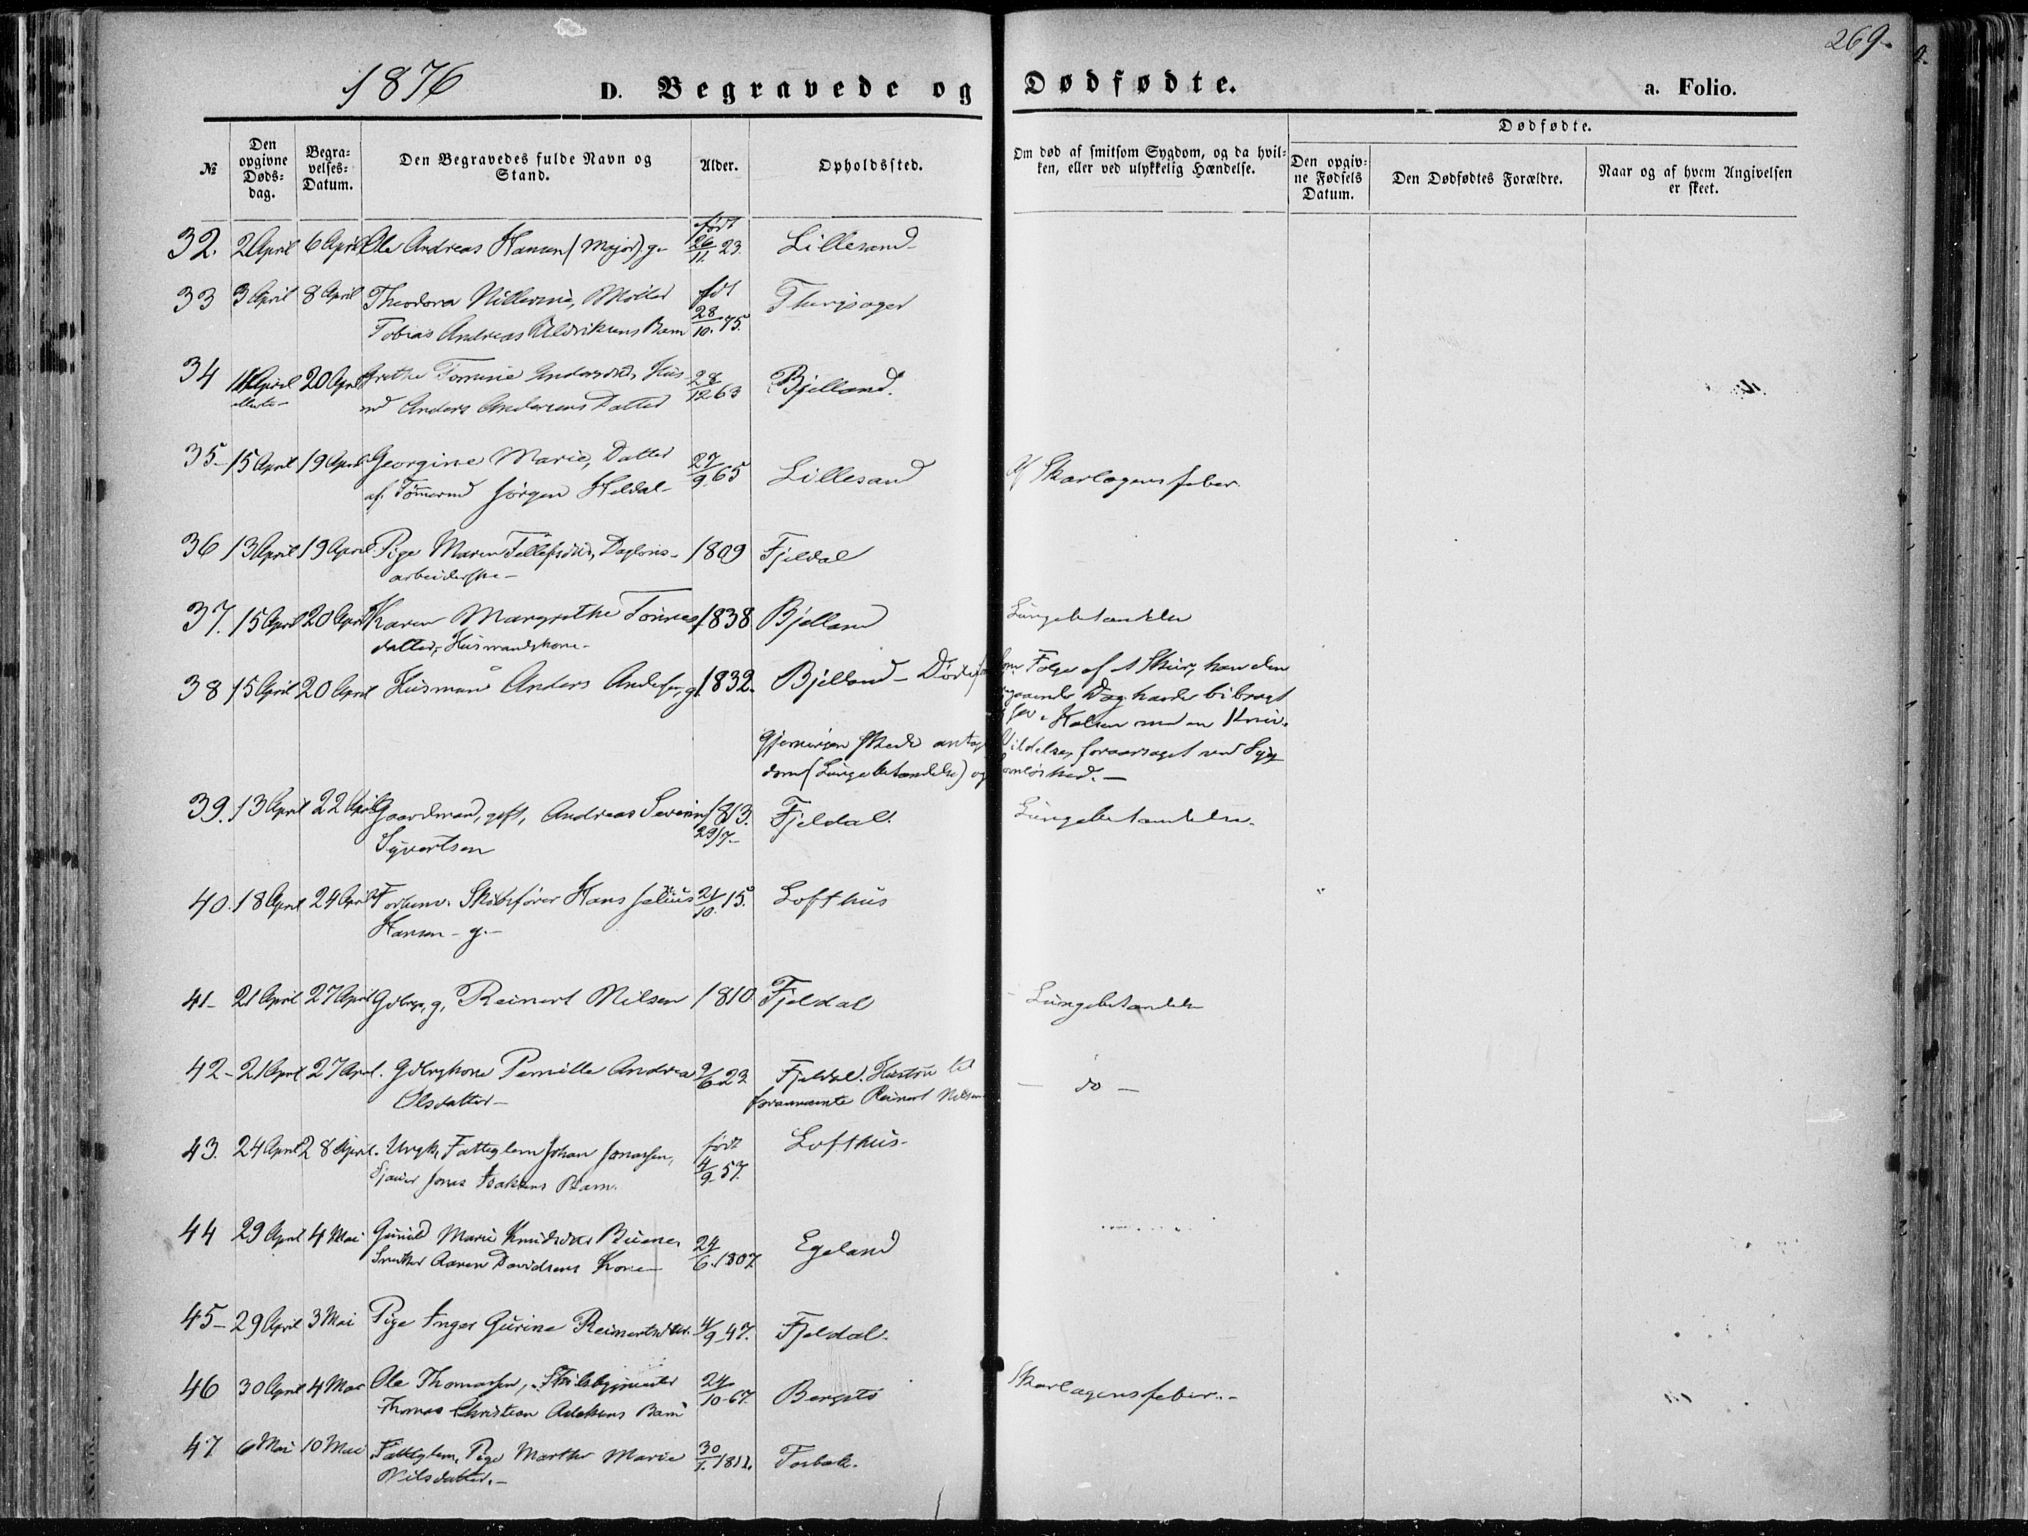 269.
1876
D. Begravede og Dødfødte.
a. Folio.
№
Den opgivne Døds-dag.
Begra-velses-Datum.
Den Begravedes fulde Navn og Stand.
Alder.
Opholdssted.
Om død af smitsom Sygdom, og da hvil-ken, eller ved ulykkelig Hændelse.
Dødfødte.
Den opgiv-ne Fødsels Datum.
Den Dødfødtes Forældre.
Naar og af hvem Angivelsen er skeet.
32. 2 April 6 April Ole Andreas Hansen (Major) g. født 26/11 23. Lillesand
33 3 April 8 April Theodora
Tobias Andreas Barn 28/10 75.
34 11 April 20 April Grethe Andersd.
Anders Andersens Datter 28/12 63 Bjelland.
35 15 April 19 April Georgine Marie, Datter 27/9 65 Lillesand Af Skarlagensfeber
af Tømmermd Jørgen Heldal
36 13 April 19 April Pige Maren Dagløns- 1809 Fjeldal
arbeiderske
37. 15 April 20 April Karen Margrethe Tønnes- 1838 Bjelland Lungebetændelse
datter, Husmandskone
38 15 April 20 April Husmand Anders Andersen, g. 1832. Bjelland - Døde som Følge af et Skur, han den
Dag havde bibragt
Halsen med en Kniv.
Gjerningen skede
(Lungebetændelse) og
39. 13 April 22 April Gaardmand, gift, Andreas Severin 1813. Fjeldal. Lungebetændelse.
Syvertsen 29/7
40. 18 April 24 April Forhenv. Skibsfører Hans Julius 21/10. 15. Lofthus
Hansen - g. -
41- 21 April 27 April g, Reinert Nilsen 1810 Fjeldal Lungebetændelse
42- 21 April 27 April. Pernille Andrea 9/6 23 Fjeldal. Hustru til - do -
Olsdatter - Reinert Nilsen
43. 24 April 28 April. Ungk. Fattiglem Johan Jonassen, født Lofthus.
Jonas Isaksens Barn. 4/9 57.
44 29 April 4 Mai Gunild Marie Knudsdtr
Aaren Davidsens Kone 24/6. 1807 Egeland
45- 29 April 3 Mai Pige Inger Gurine Reinertsdtr. 4/9 47. Fjeldal.
46 30 April 4 Mai Ole Thomassen, 24/10 67. Bergstø Skarlagensfeber. -
Thomas Christian Barn
47 6 Mai 10 Mai Fattiglem, Pige Marthe Marie 30/1. 1811. Torbek.
Nilsdatter. -